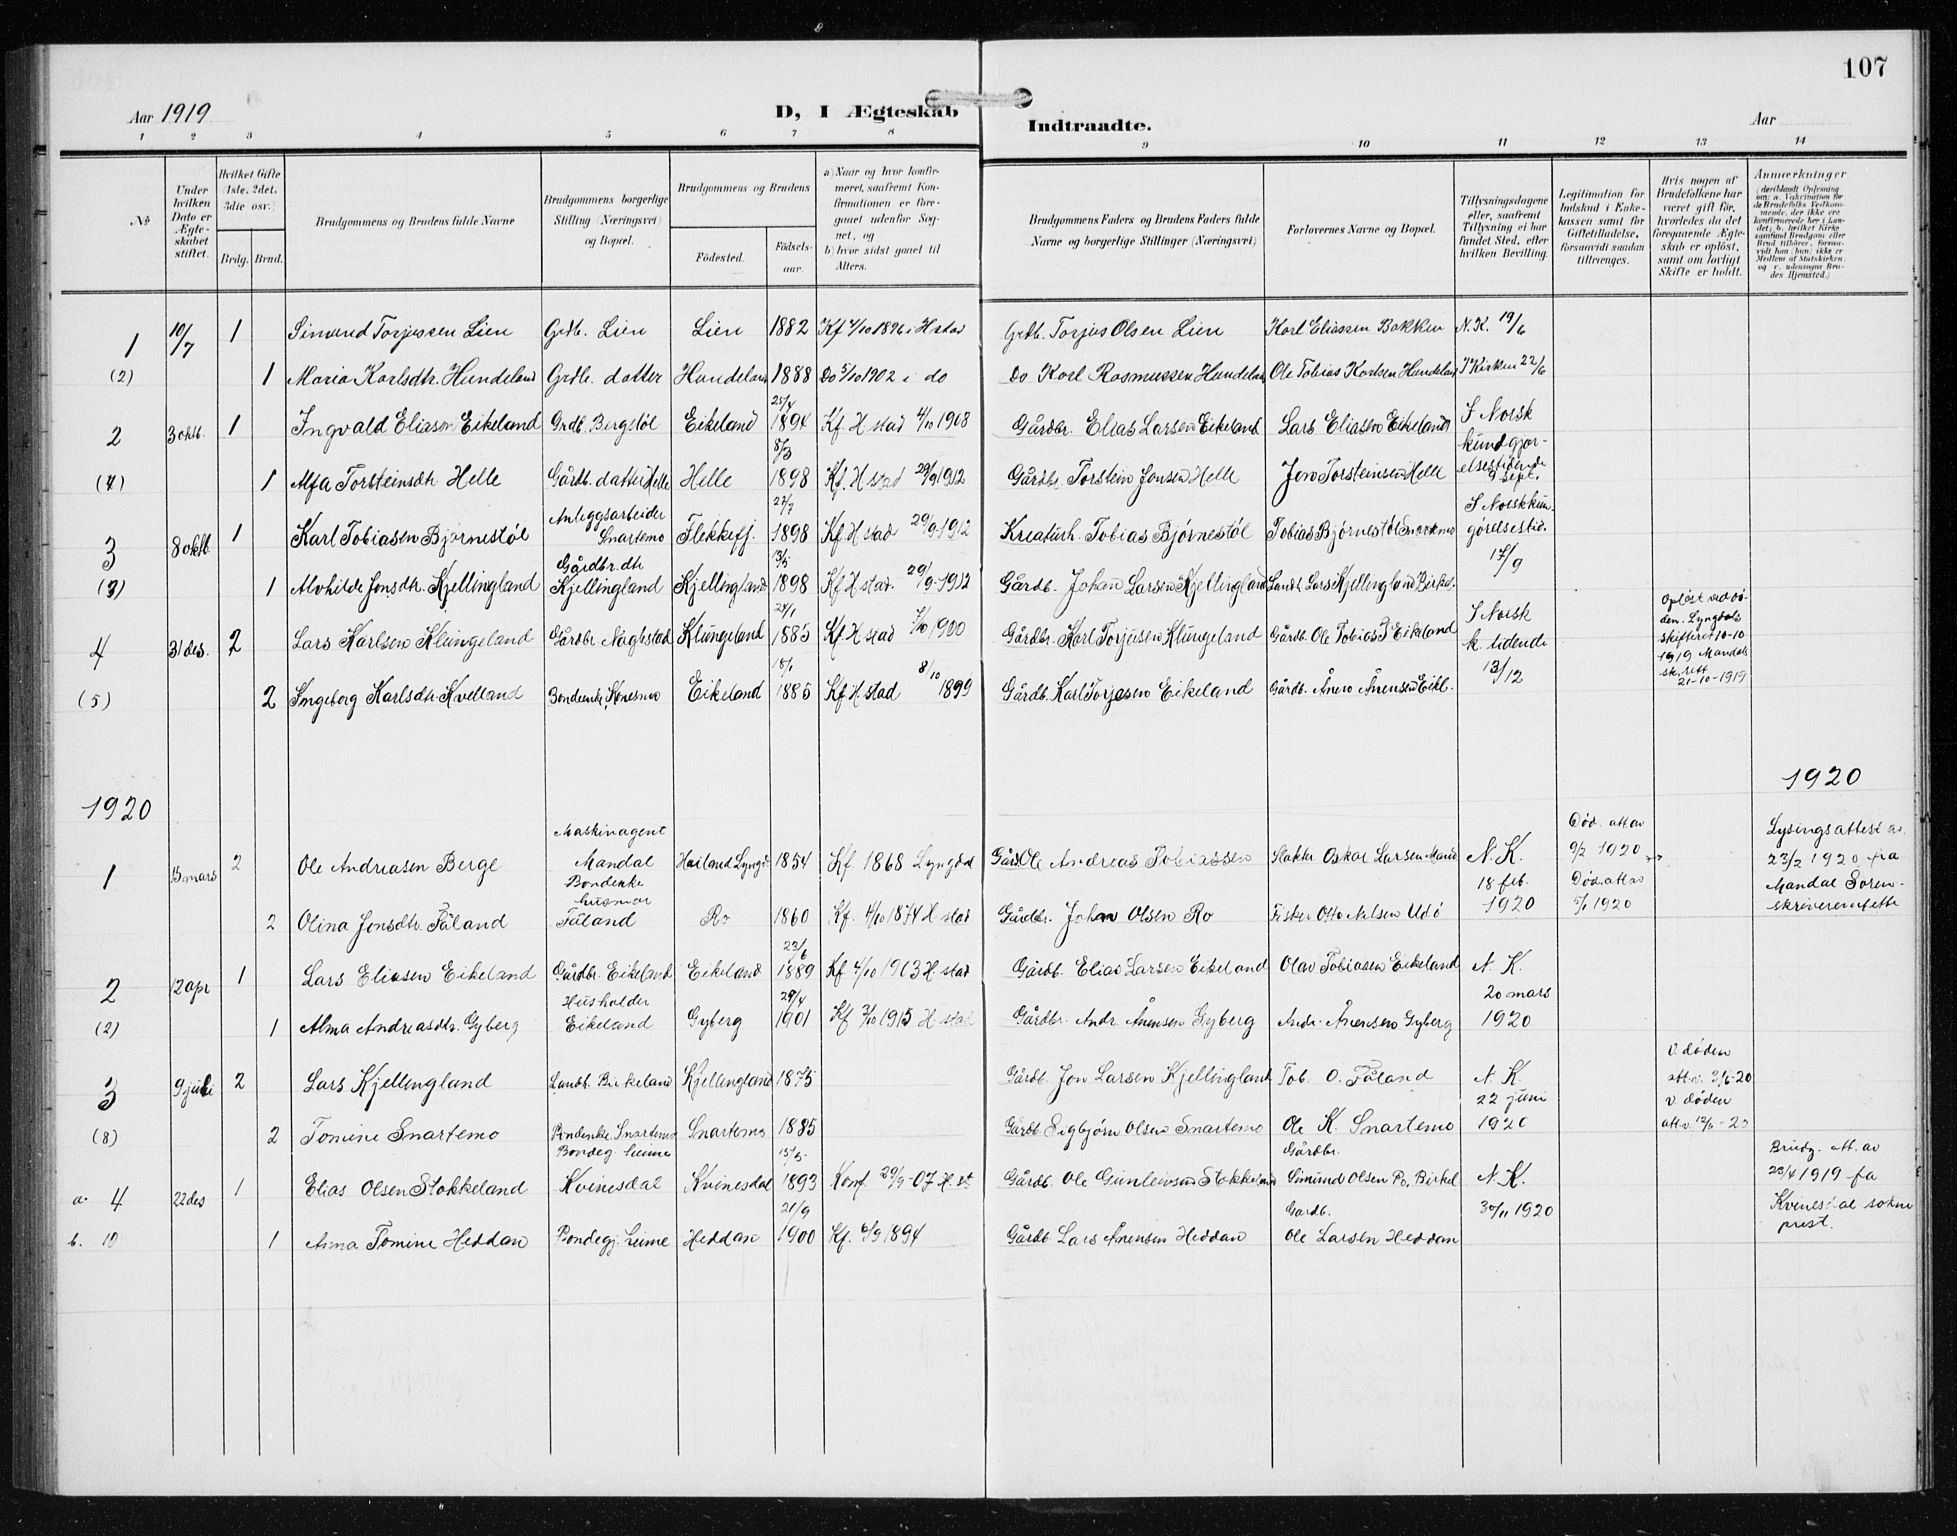 107
Aar 1919
D, I Ægteskab Indtraadte.
Aar
1 2 3 4 5 6 7 8 9 10 11 12 13 14
No
Under hvilken Dato er Ægteskabet stiftet.
Hvilket Gifte (1ste, 2det, 3die osv.)
Brdg. Brud.
Brudgommens og Brudens fulde Navne
Brudgommens borgerlige Stilling (Næringsvei) og Bopæl.
Brudgommens og Brudens
Fødested. Fødselsaar.
a) Naar og hvor konfirmeret, saafremt Konfirmationen er foregaaet udenfor Sognet, og
b) hvor sidst gaaet til Alters.
Brudgommens Faders og Brudens Faders fulde Navne og borgerlige Stillinger (Næringsvei)
Forlovernes Navne og Bopæl.
Tillysningsdagene eller, saafremt Tillysning ei har fundet Sted, efter hvilken Bevilling.
Legitimation for Indskud i Enkekassen samt for Giftetilladelse, forsaavidt saadan tiltrænges.
Hvis nogen af Brudefolkene har været gift før, hvorledes da det foregaaende Ægteskab er opløst, samt om lovligt Skifte er holdt.
Anmærkninger
(deriblandt Oplysning om: a. Vakcination for de Brudefolks Vedkommende, der ikke ere konfirmerede her i Landet; b. hvilket Kirkesamfund Brudgom eller Brud tilhører, forsaavidt han (hun) ikke er Medlem af Statskirken, og c. udensogns Brudes Hjemsted.)
1 10/7 1 Simund Torjussen Lien Grdb. Lien Lien 1882 Kf 4/10 1896 i H stad Grdb. Torjus Olsen Lien Karl Eliassen Bakken N. K. 19/6
(2) 1 Maria Karlsdtr. Hundeland Grdb. datter Hundeland 1888 Do 5/10 1902 i do Do Karl Rasmussen Hundeland Ole Tobias Karlsen Hundeland I Kirken 22/6
2 3 oktb. 1 Ingvald Eliasen Eikeland Grdb. Bergstøl Eikeland 25/4 1894 Kf. H stad 4/10 1908 Gårdbr. Elias Larsen Eikeland Lars Eliasen Eikeland I Norsk kundgjør-
(4) 1 Alfa Torsteinsdtr Helle Gårdb. datter Helle Helle 8/3 1898 Kf. H stad 29/9 1912 Gårdbr. Torstein Jonsen Helle Jon Torsteinsen Helle elsestidende 9 sept.
3 8 oktb. 1 Karl Tobiasen Bjørnestøl Anleggsarbeider Snartemo Flekkefj. 27/7 1898 Kf H stad 29/9-1912 Kreaturh. Tobias Bjørnestøl Tobias Bjørnestøl Snartemo I Norsk kungørelsestid.
(3) 1 Alvhilde Jonsdtr. Kjellingland Gårdbr. dtr Kjellingland Kjellingland 13/5 1898 Kf. H stad. 29/9-1912 Gårdb. Johan Larsen Kjellingland Landh. Lars Kjellingland Birkel. 17/9
4 31 des. 2 Lars Karlsen Klungeland Gårdbr Naglestad Klungeland 28/1 1885 Kf. H stad 7/10 1900 Gårdbr. Karl Torjusen Klungeland Gårdb. Ole Tobias T Eikeland I Norsk k. tidende Opløst ved døden. Lyngdals skifteret 10-10 1919 Mandals sk.rett 21-10-1919
(5) 2 Ingeborg Karlsdtr. Kvelland Bondeenke, Konesmo Eikeland 18/1 1885 Kf H stad 8/10 1899 Gårdb. Karl Torjesen Eikeland Gårdb. Ånen Ånensen Eikl. 13/12
1920 1920
1 15 mars 2 Ole Andreasen Berge Maskinagent Mandal Hailand Lyngd. 1854 Kf 1868 Lyngdal Gårdb. Ole Andreas Tobiassen Slakter Oskar Larsen Mand. N. K. Død. att av 9/2 1920 Lysingsattest av 23/2 1920 fra
2 Olina Jonsdtr. Fåland Bondenke husmor Fåland Ro 1860 Kf. 4/10 1874 H stad Gårdbr. Johan Olsen Ro Fisker Otto Nilsen Udø 18 feb. 1920 Død. att av 5/1 1920 Mandal Sorenskriverembette
2 12 apr 1 Lars Eliasen Eikeland Gårdbr. Eikeland Eikeland 23/6 1889 Kf 4/10 1903 H stad Gårdb. Elias Larsen Eikeland Olav Tobiasen Eikeland N. K.
(2) 1 Alma Andreasdtr. Gyberg Husholder Eikeland Gyberg 29/4 1901 Kf 3/10 1915 H stad Gårdbr. Andr. Ånensen Gyberg Andr. Ånensen Gyberg 20 mars 1920
3 9 juli 2 Lars Kjellingland Landh. Birkeland Kjellingland 1875 Gårdb. Jon Larsen Kjellingland Tob. O. Fåland N. K. v. døden att.v. 2/6-20
(8) 2 Tomine Snartemo Bondenke. Snartemo Snartemo 1885 Gårdb Sigbjørn Olsen Snartemo Ole K. Snartemo 22 juni 1920 v. døden att.v. 12/6-20
a. 4 22 des 1 Elias Olsen Stokkeland Bondeg. heime Kvinesdal Kvinesdal 15/5 1893 Konf. 29/9-07 H. st Gårdb. Ole Gunleivsen Stokkeland Gårdbr. Simund Olsen Ro, Birkel N. K. Brudg. att. av 23/4 1919 fra
b. 10 1 Anna Tomine Heddan Bondegj. heime Heddan 21/9 1900 Kf. 6/9 1894 Gårdb. Lars Ånensen Heddan Gardb. Ole Larsen Heddan 30/11 1920 Kvinesdal sokneprest.